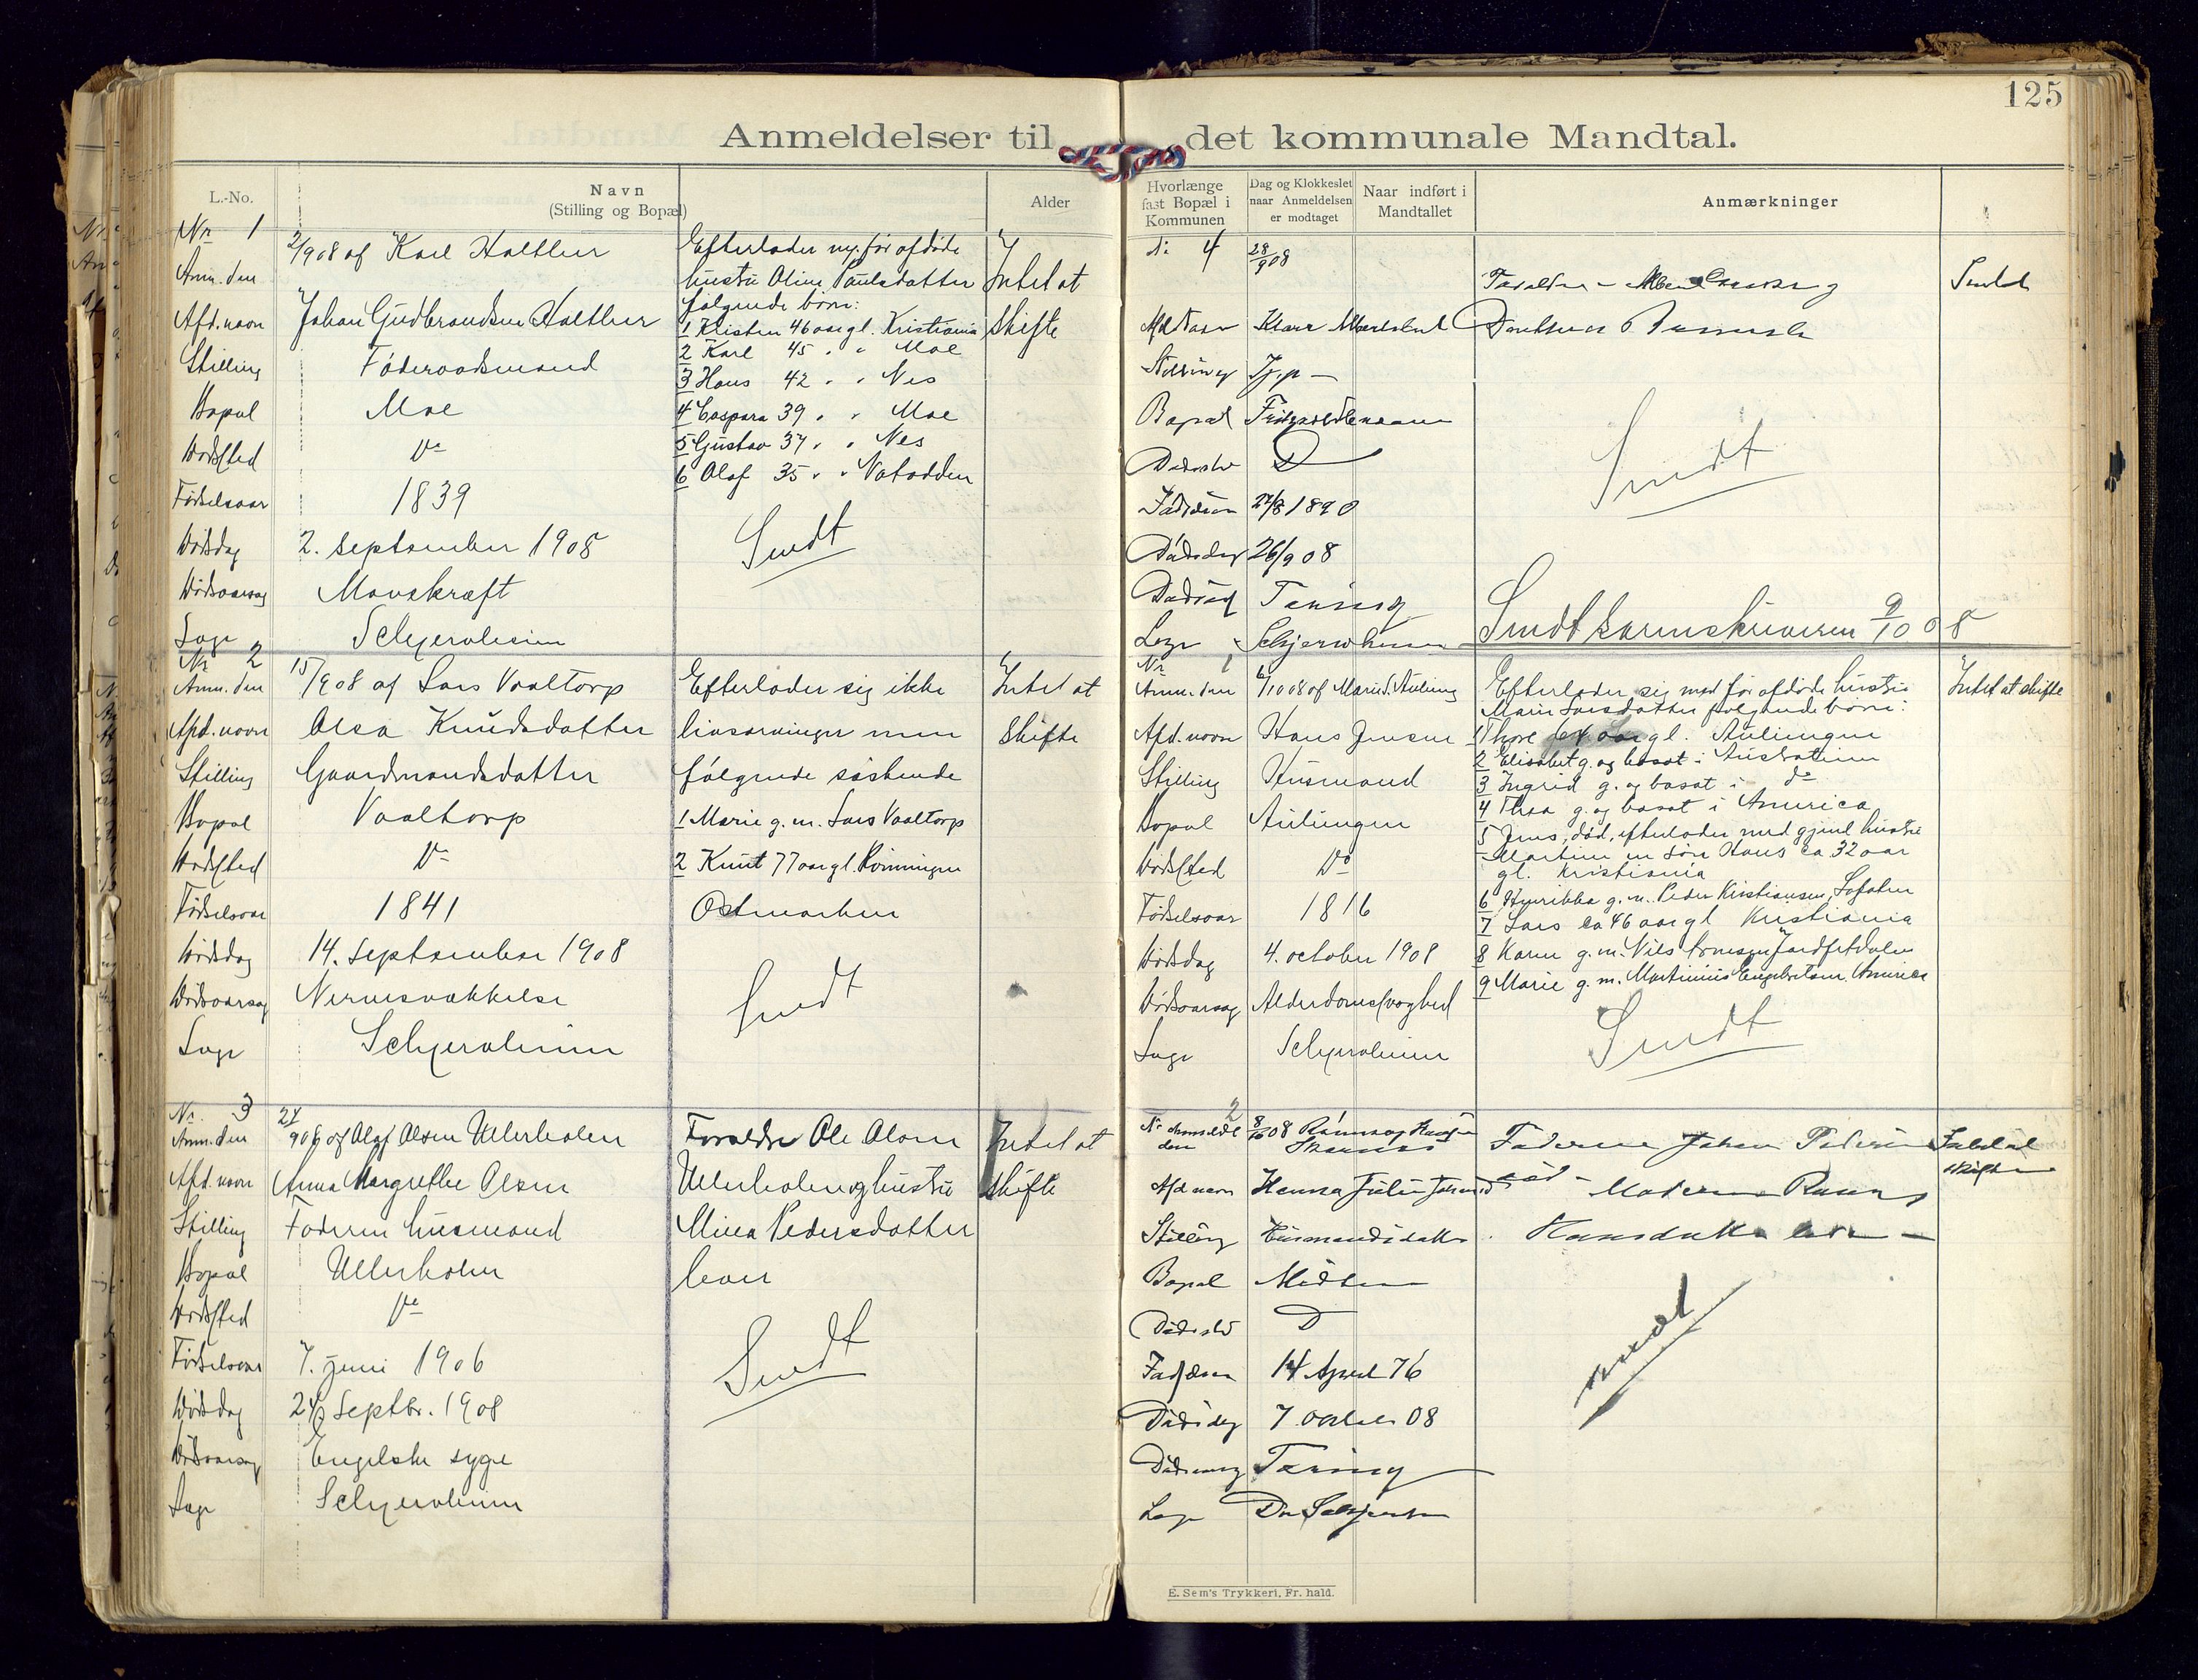 125
Anmeldelser til det kommunale Mandtal.
L.-No.
Navn
(Stilling og Bopæl)
Alder
Nr 1
Anm. den 2/9 08 af Karl Haltbur
Afd. navn Johan Gudbrandsen
Stilling Føderaadsmand
Bopæl Moe
Dødssted Do
Fødselsaar 1839
Dødsdag 2. september 1908
Dødsaarsag Mavekræft
Læge
Efterlader sig før afdøde
hustru Oline Paulsdatter
følgende børn:
1 Kristen 46 aar gl. Kristiania
2 Karl 45 " " Moe
3 Hans 42 " " Nes
4 Caspara 39 " " Moe
5 Gustav 37 " " Nes
6 Olaf 35 " " Notodden
Sendt
Intet at
skifte
Nr 2
Anm. den 15/9 08 af Lars Vaaltorp
Afd. navn Olea Knudsdatter
Stilling Gaardmandsdatter
Bopæl Vaaltorp
Dødssted Do
Fødselsaar 1841
Dødsdag 14. september 1908
Dødsaarsag Nervesvækkelse
Læge
Efterlader sig ikke
livsarvinger men
følgende søskende
1 Marie g. m. Lars Vaaltorp
2 Knut 77 aar gl. Rønningen
Østmarken
Sendt
Intet at
skifte
Nr. 3
Anm. den 24/9 08 af Olaf Olsen Ullerholen
Afd. navn Anna Margrethe Olsen
Stilling Faderen husmand
Bopæl Ullerholen
Dødssted Do
Fødselsaar 7. juni 1906
Dødsdag 24/9 Septbr. 1908
Dødsaarsag Engelske syge
Læge
Forældre Ole Olsen
Ullerholen og hustru
Mina Pedersdatter
lever
Sendt
Intet at
skifte
Hvorlænge
fast Bopæl i
Kommunen
Dag og Klokkeslet
naar Anmeldelsen
er modtaget
Naar indført i
Mandtallet
Anmærkninger
Nr 4 28/9 08
Afd Navn
Stilling
Bopæl
Dødssted D
27/8 1890
Dødsdag 26/9 08
Tæring
Læge
Sendt
Sendt
Sendt 9/10 08
Nr 1
Anm. den 6/10 08 af
Afd. navn Hans Jensen
Stilling Husmand
Bopæl Aulungen
Dødssted Do
Fødselsaar 1816
Dødsdag 4. october 1908
Dødsaarsag Alderdomssvaghed
Læge
Efterlader sig med før afdøde hustru
Marie Larsdatter følgende børn:
1 Thore 64 aar gl. Aulungen
2 Elisabet g. og bosat i Australien
3 Ingrid g. og bosat i do
4 Thea g. og bosat i America
5 Jens, død, efterlader med gjenl. hustru
Martine en søn Hans ca 32 aar
gl. Kristiania
6 Henrikka g. m. Peder Kristiansen,
7 Lars ca 46 aar gl Kristiania
8 Karen g. m. Nils
9 Marie g. m. Martinius Engebretsen, America
Sendt
Intet at skifte
Nr 2
Anmeldt den 8/10 08
Afd navn Hanna Julie
Stilling Husmandsdatter
Bopæl
Dødssted D
14 April 76
Dødsdag 7 october 08
Tæring
Læge
Faderen Johan Pedersen
død - Moderen
Hansdatter lever
sendt
Intet at
skifte
E. Sem's Trykkeri, Fr. hald.